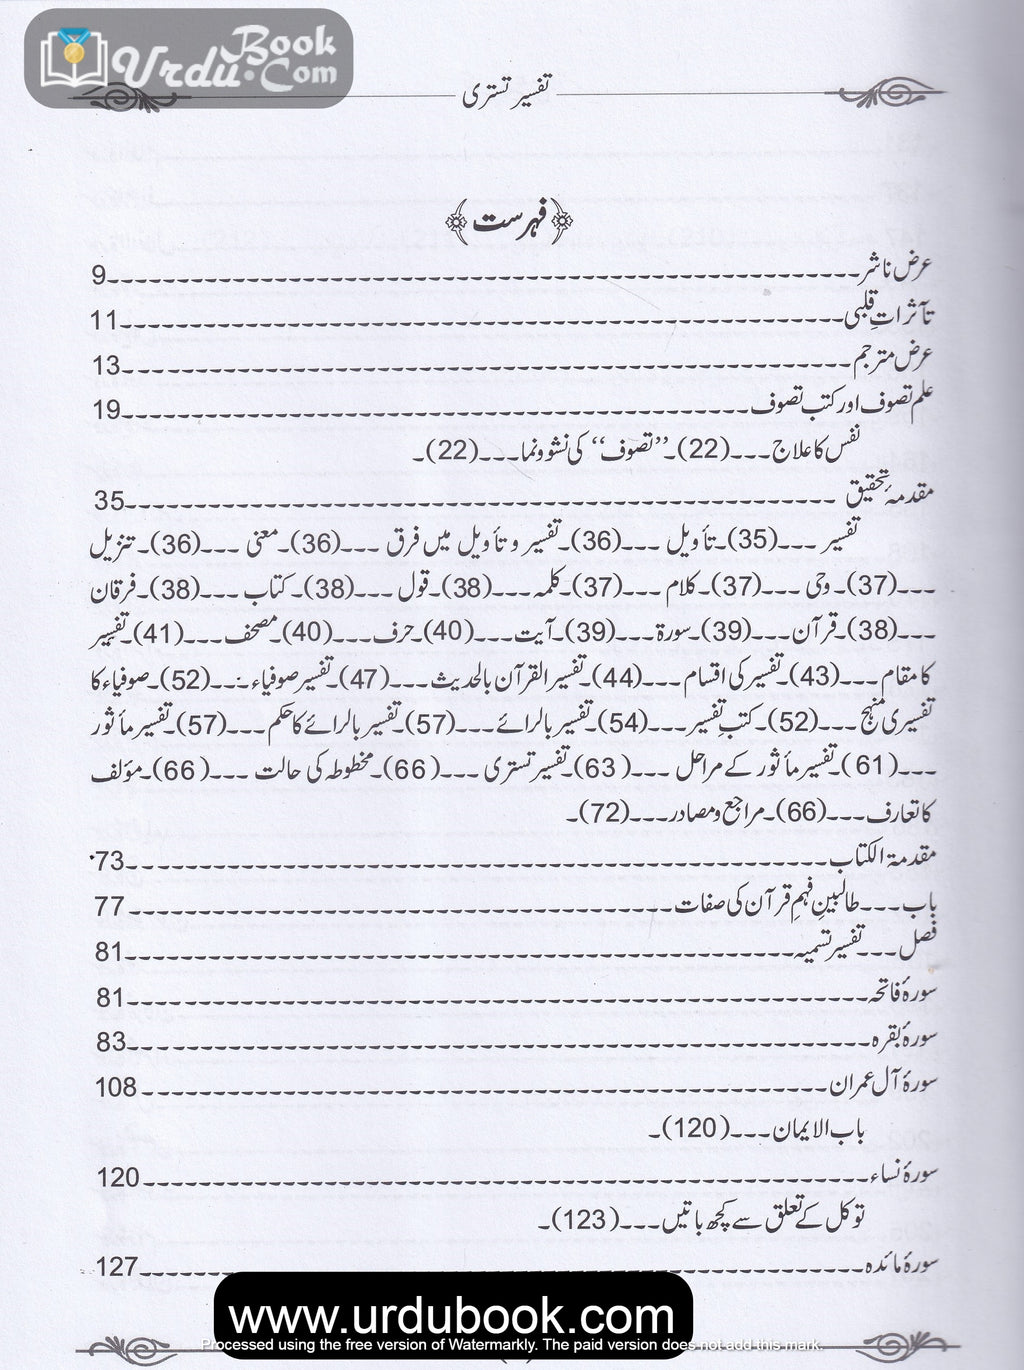 Urdu Book.Com
تفسیر تستری
﴿فہرست﴾
عرض ناشر------9
تأثراتِ قلبی------11
عرض مترجم------13
علم تصوف اور کتب تصوف------19
نفس کا علاج---(22)۔"تصوف" کی نشوونما---(22)۔
مقدمۂ تحقیق ------35
تفسیر ---(35)۔تأویل ---(36)۔تفسیر و تأویل میں فرق ---(36)۔معنی ---(36)۔تنزیل
---(37)۔وحی ---(37)۔کلام ---(37)۔کلمہ---(38)۔قول ---(38)۔کتاب ---(38)۔فرقان
---(38)۔قرآن---(39)۔سورۃ---(39)۔آیت---(40)۔حرف---(40)۔مصحف---(41)۔تفسیر
کا مقام ---(43)۔تفسیر کی اقسام---(44)۔تفسیر القرآن بالحدیث---(47)۔تفسیر صوفیاء---(52)۔صوفیاء کا
تفسیری منہج---(52)۔کتبِ تفسیر---(54)۔تفسیر بالرائے---(57)۔تفسیر بالرائے کا حکم---(57)۔تفسیر مأثور
---(61)۔تفسیر مأثور کے مراحل ---(63)۔تفسیر تستری ---(66)۔مخطوطہ کی حالت ---(66)۔مؤلف
کا تعارف---(66)۔مراجع و مصادر---(72)۔
مقدمۃ الکتاب------73
باب---طالبینِ فہمِ قرآن کی صفات------77
فصل---تفسیر تسمیہ------81
سورۂ فاتحہ------81
سورۂ بقرہ------83
سورۂ آل عمران------108
باب الایمان---(120)۔
سورۂ نساء------120
توکل کے تعلق سے کچھ باتیں---(123)۔
سورۂ مائدہ------127
www.urdubook.com
Processed using the free version of Watermarkly. The paid version does not add this mark.